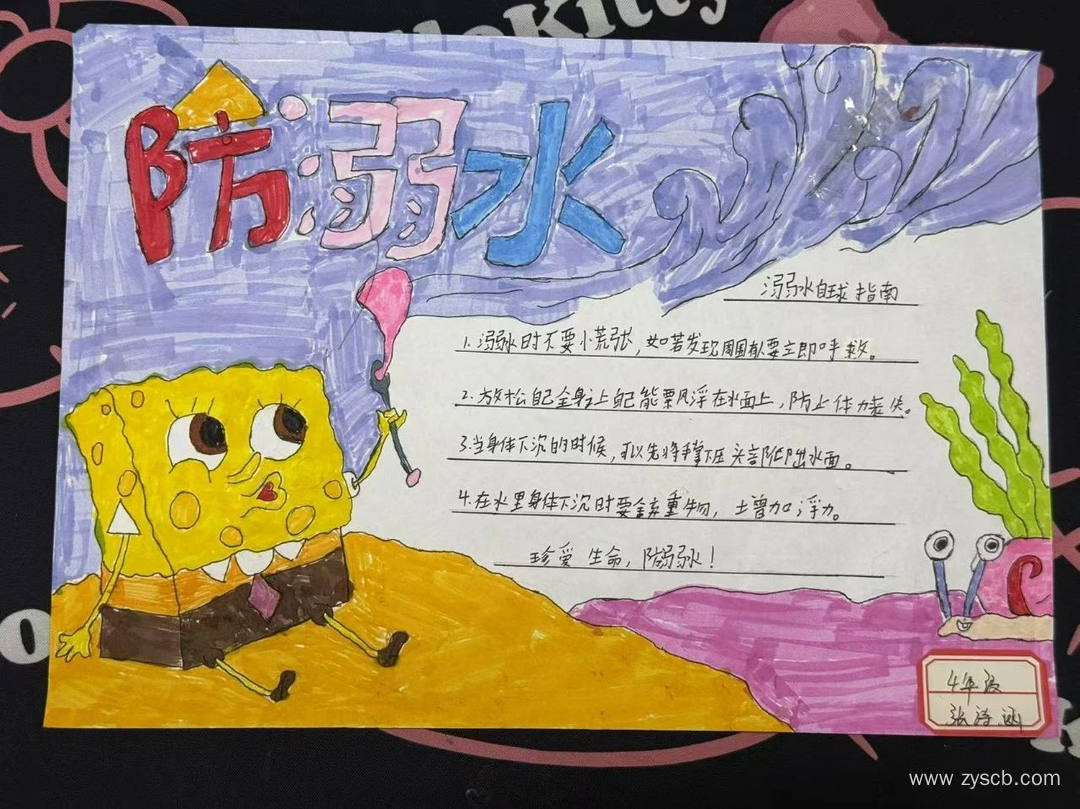 HelloKitty
防溺水
溺水自球指南
1.溺水时不要小荒张,如若发现周围有人要立即呼救。
2.放松自己全身让自己能票风浮在水面上,防止体力丧失。
3.当身体下沉的时候,可以先将掌下压头部即出水面。
4.在水里身体下沉时要舍弃重物,土曾加浮力。
珍爱生命,防溺水!
4年级
张诗涵
www.zyscb.com